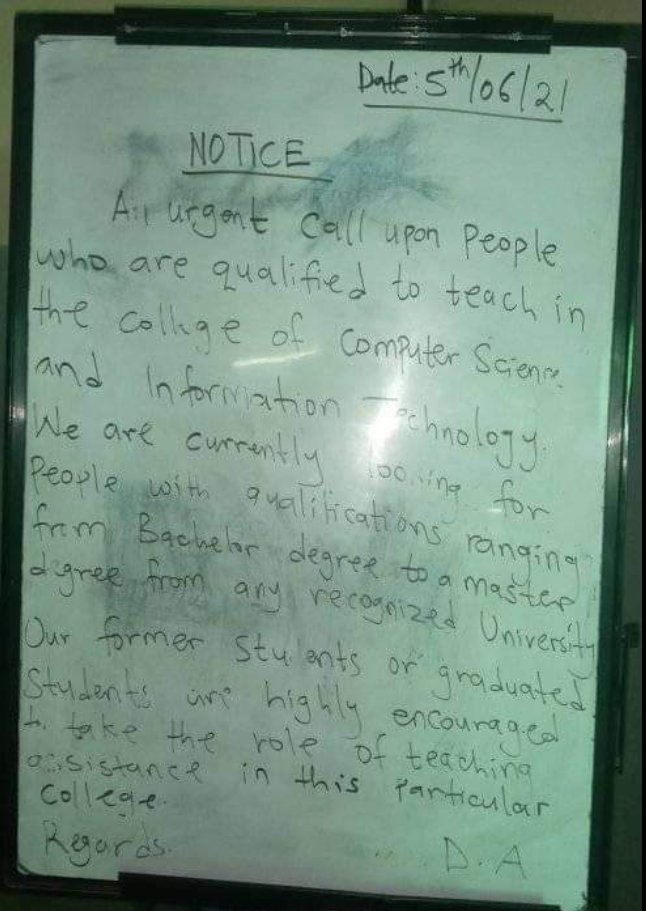 Date: 5th/06/21
NOTICE
An urgent call upon people
who are qualified to teach in
the college of Computer Science
and Information Technology.
We are currently looking for
People with qualifications ranging
from Bachelor degree to a master
degree from any recognized University
Our former students or graduated
Students are highly encouraged
to take the role of teaching
assistance in this particular
College.
Regards.
D.A